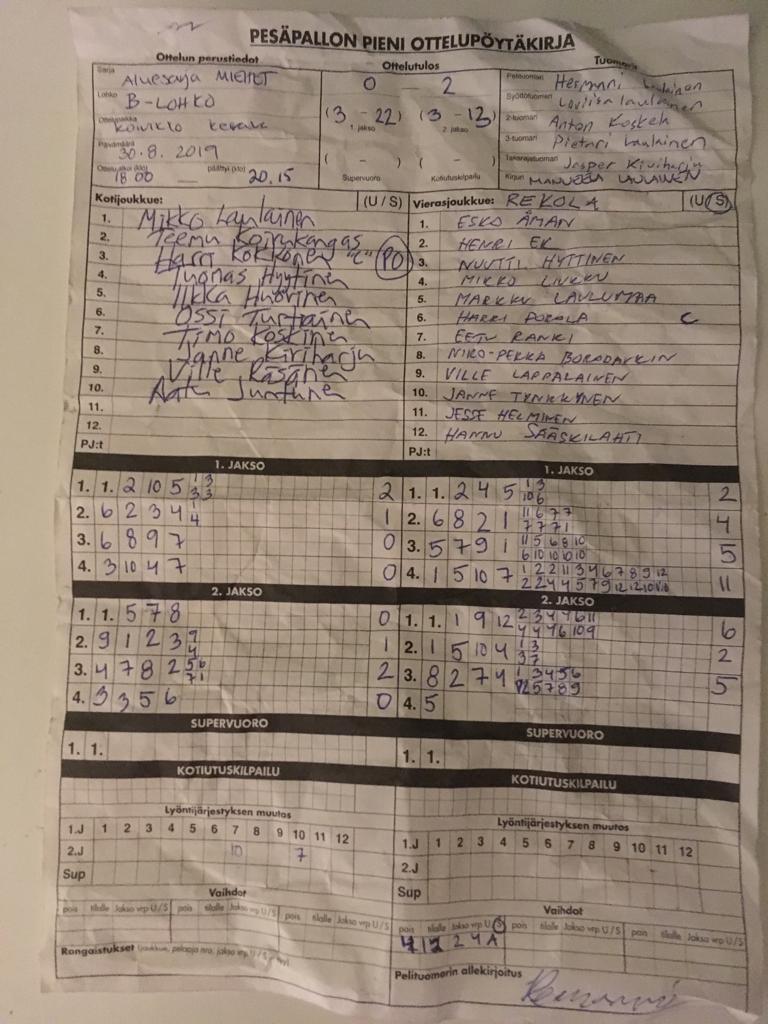 PESÄPALLON PIENI OTTELUPÖYTÄKIRJA
Ottelun perustiedot
Ottelutulos
Sarja
Aluesarja MIEHET
Lohko
B-LOHKO
Ottelupaikka
Päivämäärä
30.8.2019
Ottelu alkoi (klo) päättyi (klo)
18 00 20.15
0 - 2
(3 - 22) (3 - 13)
1. jakso 2. jakso
( - ) ( - )
Supervuoro Kotiutuskilpailu
Pelituomari
Hermanni Laulainen
Syöttötuomari
Loviisa Laulainen
2-tuomari
Anton Koskela
3-tuomari
Pietari Laulainen
Takarajatuomari
Jasper Kiviharju
Kirjuri
MANUELA LAULAINEN
Kotijoukkue: (U / S)
1. Mikko Laulainen
2. Teemu Koivukangas
3. Harri Kokkonen "C" PO
4. Tuomas Hyytinen
5. Ilkka Huovinen
6. Ossi Turtiainen
7. Timo Koskinen
8. Janne Kiviharju
9. Ville Räsänen
10. Juntunen
11.
12.
PJ:t
Vierasjoukkue: REKOLA (U / S)
1. ESKO ÅMAN
2. HENRI EK
3. NUUTTI HYTTINEN
4. MIKKO LIUKKU
5. MARKKU LAULUMAA
6. HARRI POROLA C
7. EETU RANKI
8. NIKO-PEKKA BORODAVKIN
9. VILLE LAPPALAINEN
10. JANNE TYNKKYNEN
11. JESSE HELMINEN
12. HANNU SÄÄSKILAHTI
PJ:t
1. JAKSO
1. 1. 2 10 5 1 3 2
3 3
2. 6 2 3 4 1 1
4
3. 6 8 9 7 0
4. 3 10 4 7 0
2. JAKSO
1. 1. 5 7 8 0
2. 9 1 2 3 9 1
4
3. 4 7 8 2 5 6 2
7 1
4. 3 3 5 6 0
SUPERVUORO
1. 1.
KOTIUTUSKILPAILU
1. JAKSO
1. 1. 2 4 5 1 3 2
10 6
2. 6 8 2 1 11 6 7 7 4
7 7 7 1
3. 5 7 9 1 11 5 6 8 10 5
6 10 10 10 10
4. 1 5 10 7 1 2 2 11 3 4 6 7 8 9 12 11
2. JAKSO
1. 1. 1 9 12 2 3 4 4 6 11 6
4 4 4 6 10 9
2. 1 5 10 4 1 3 2
3 7
3. 8 2 7 4 1 3 4 5 6 5
12 5 7 8 9
4. 5
SUPERVUORO
1. 1.
KOTIUTUSKILPAILU
Lyöntijärjestyksen muutos
1.J 1 2 3 4 5 6 7 8 9 10 11 12
2.J 10 7
Sup
Vaihdot
pois tilalle Jakso vrp U / S pois tilalle Jakso vrp U / S pois tilalle Jakso vrp U / S
Rangaistukset
Lyöntijärjestyksen muutos
1.J 1 2 3 4 5 6 7 8 9 10 11 12
2.J
Sup
Vaihdot
pois tilalle Jakso vrp U / S pois tilalle Jakso vrp U / S pois tilalle Jakso vrp U / S
4 12 2 4 A
Pelituomarin allekirjoitus